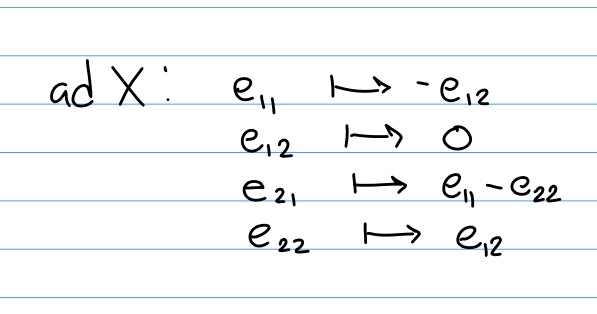 ad X: e₁₁ ↦ -e₁₂
e₁₂ ↦ 0
e₂₁ ↦ e₁₁ - e₂₂
e₂₂ ↦ e₁₂